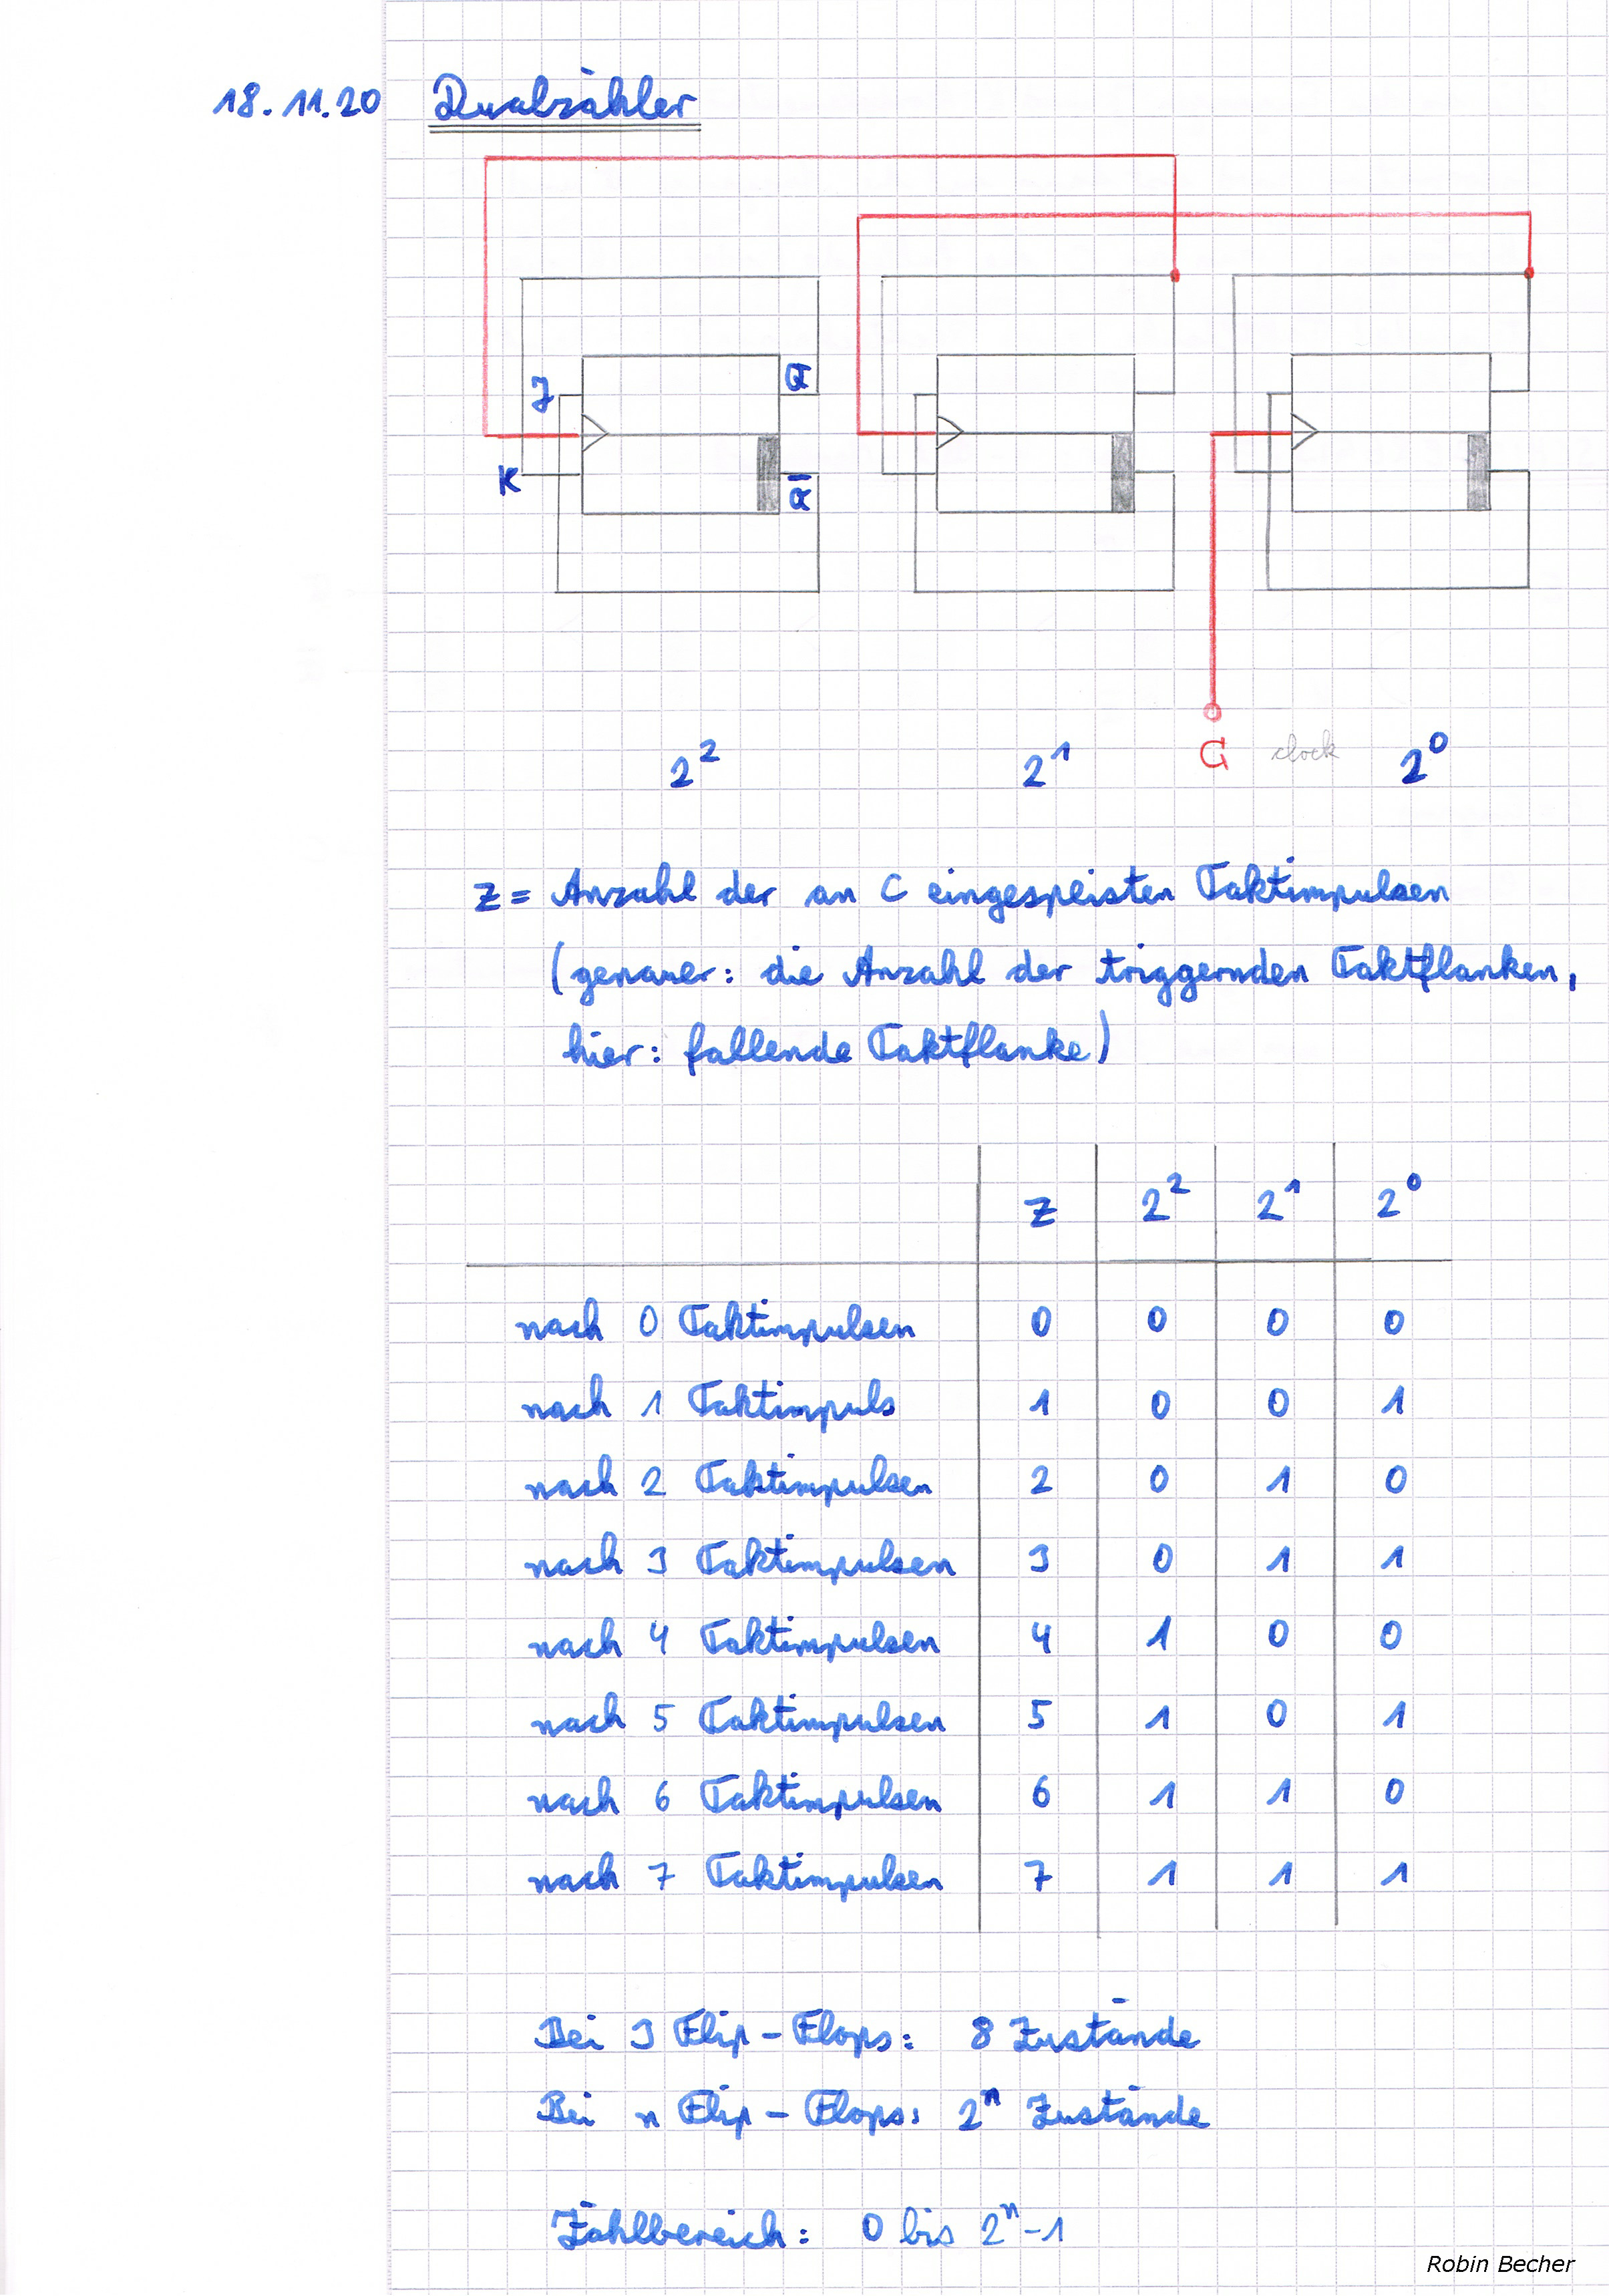 18.11.20 Dualzähler
J Q
K Q̅
C clock
2² 2¹ 2⁰
z = Anzahl der an C eingespeisten Taktimpulsen
(genauer: die Anzahl der triggernden Taktflanken,
hier: fallende Taktflanke)
z 2² 2¹ 2⁰
nach 0 Taktimpulsen 0 0 0 0
nach 1 Taktimpuls 1 0 0 1
nach 2 Taktimpulsen 2 0 1 0
nach 3 Taktimpulsen 3 0 1 1
nach 4 Taktimpulsen 4 1 0 0
nach 5 Taktimpulsen 5 1 0 1
nach 6 Taktimpulsen 6 1 1 0
nach 7 Taktimpulsen 7 1 1 1
Bei 3 Flip-Flops: 8 Zustände
Bei n Flip-Flops: 2ⁿ Zustände
Zählbereich: 0 bis 2ⁿ-1
Robin Becher